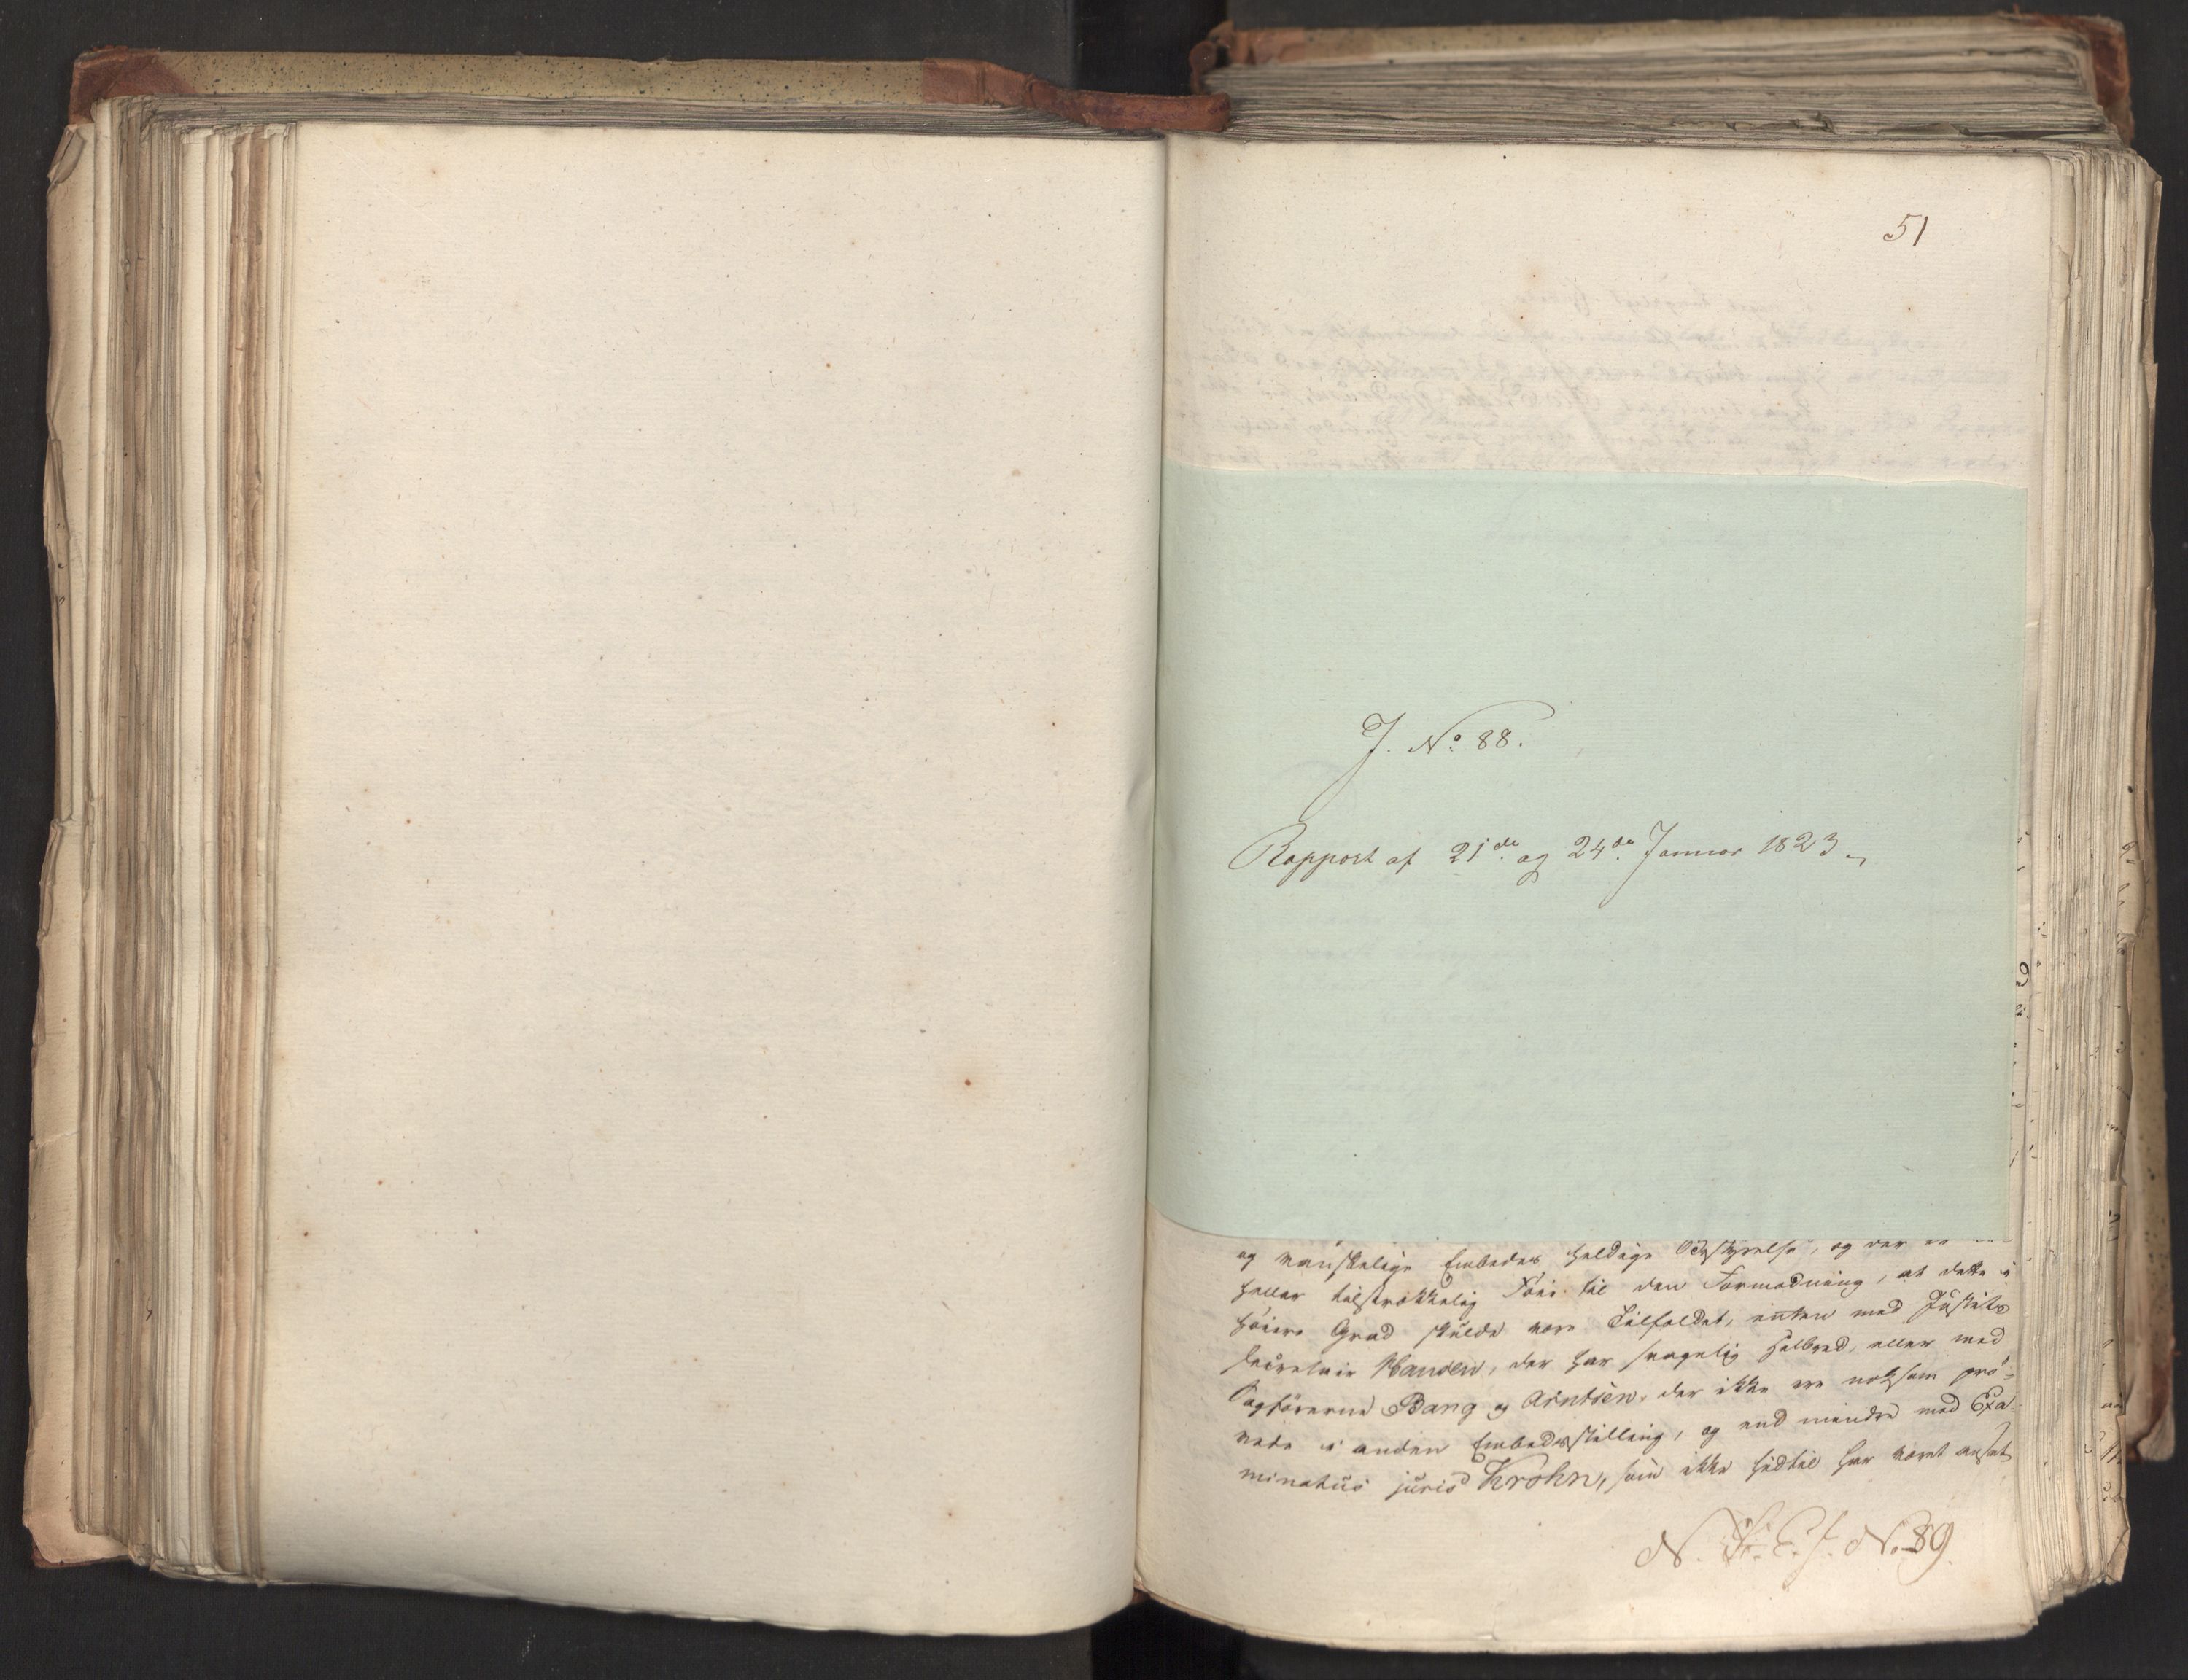 51
J. No. 88.
Rapport af 21de og 24de Januar 1823
og vanskelige Embedes heldige Bestyrelse, og der er
heller tilstrækkelig Föie til den Formodning, at dette i
höiere Grad skulde være Tilfældet, enten med Justits
secretair Hansen, der har svagelig Helbred, eller med
Sagförerne Bang og Arntsen, der ikke ere noksom prö-
vede i anden Embedsstilling, og end mindre med Exa
minatus juris Krohn, som ikke hidtil har været ansat
N. E. J. No. 89.